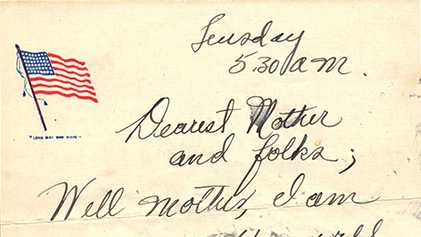 Tuesday
5:30 a.m.
"LONG MAY SHE WAVE"
Dearest Mother
and folks;
Well mother, I am